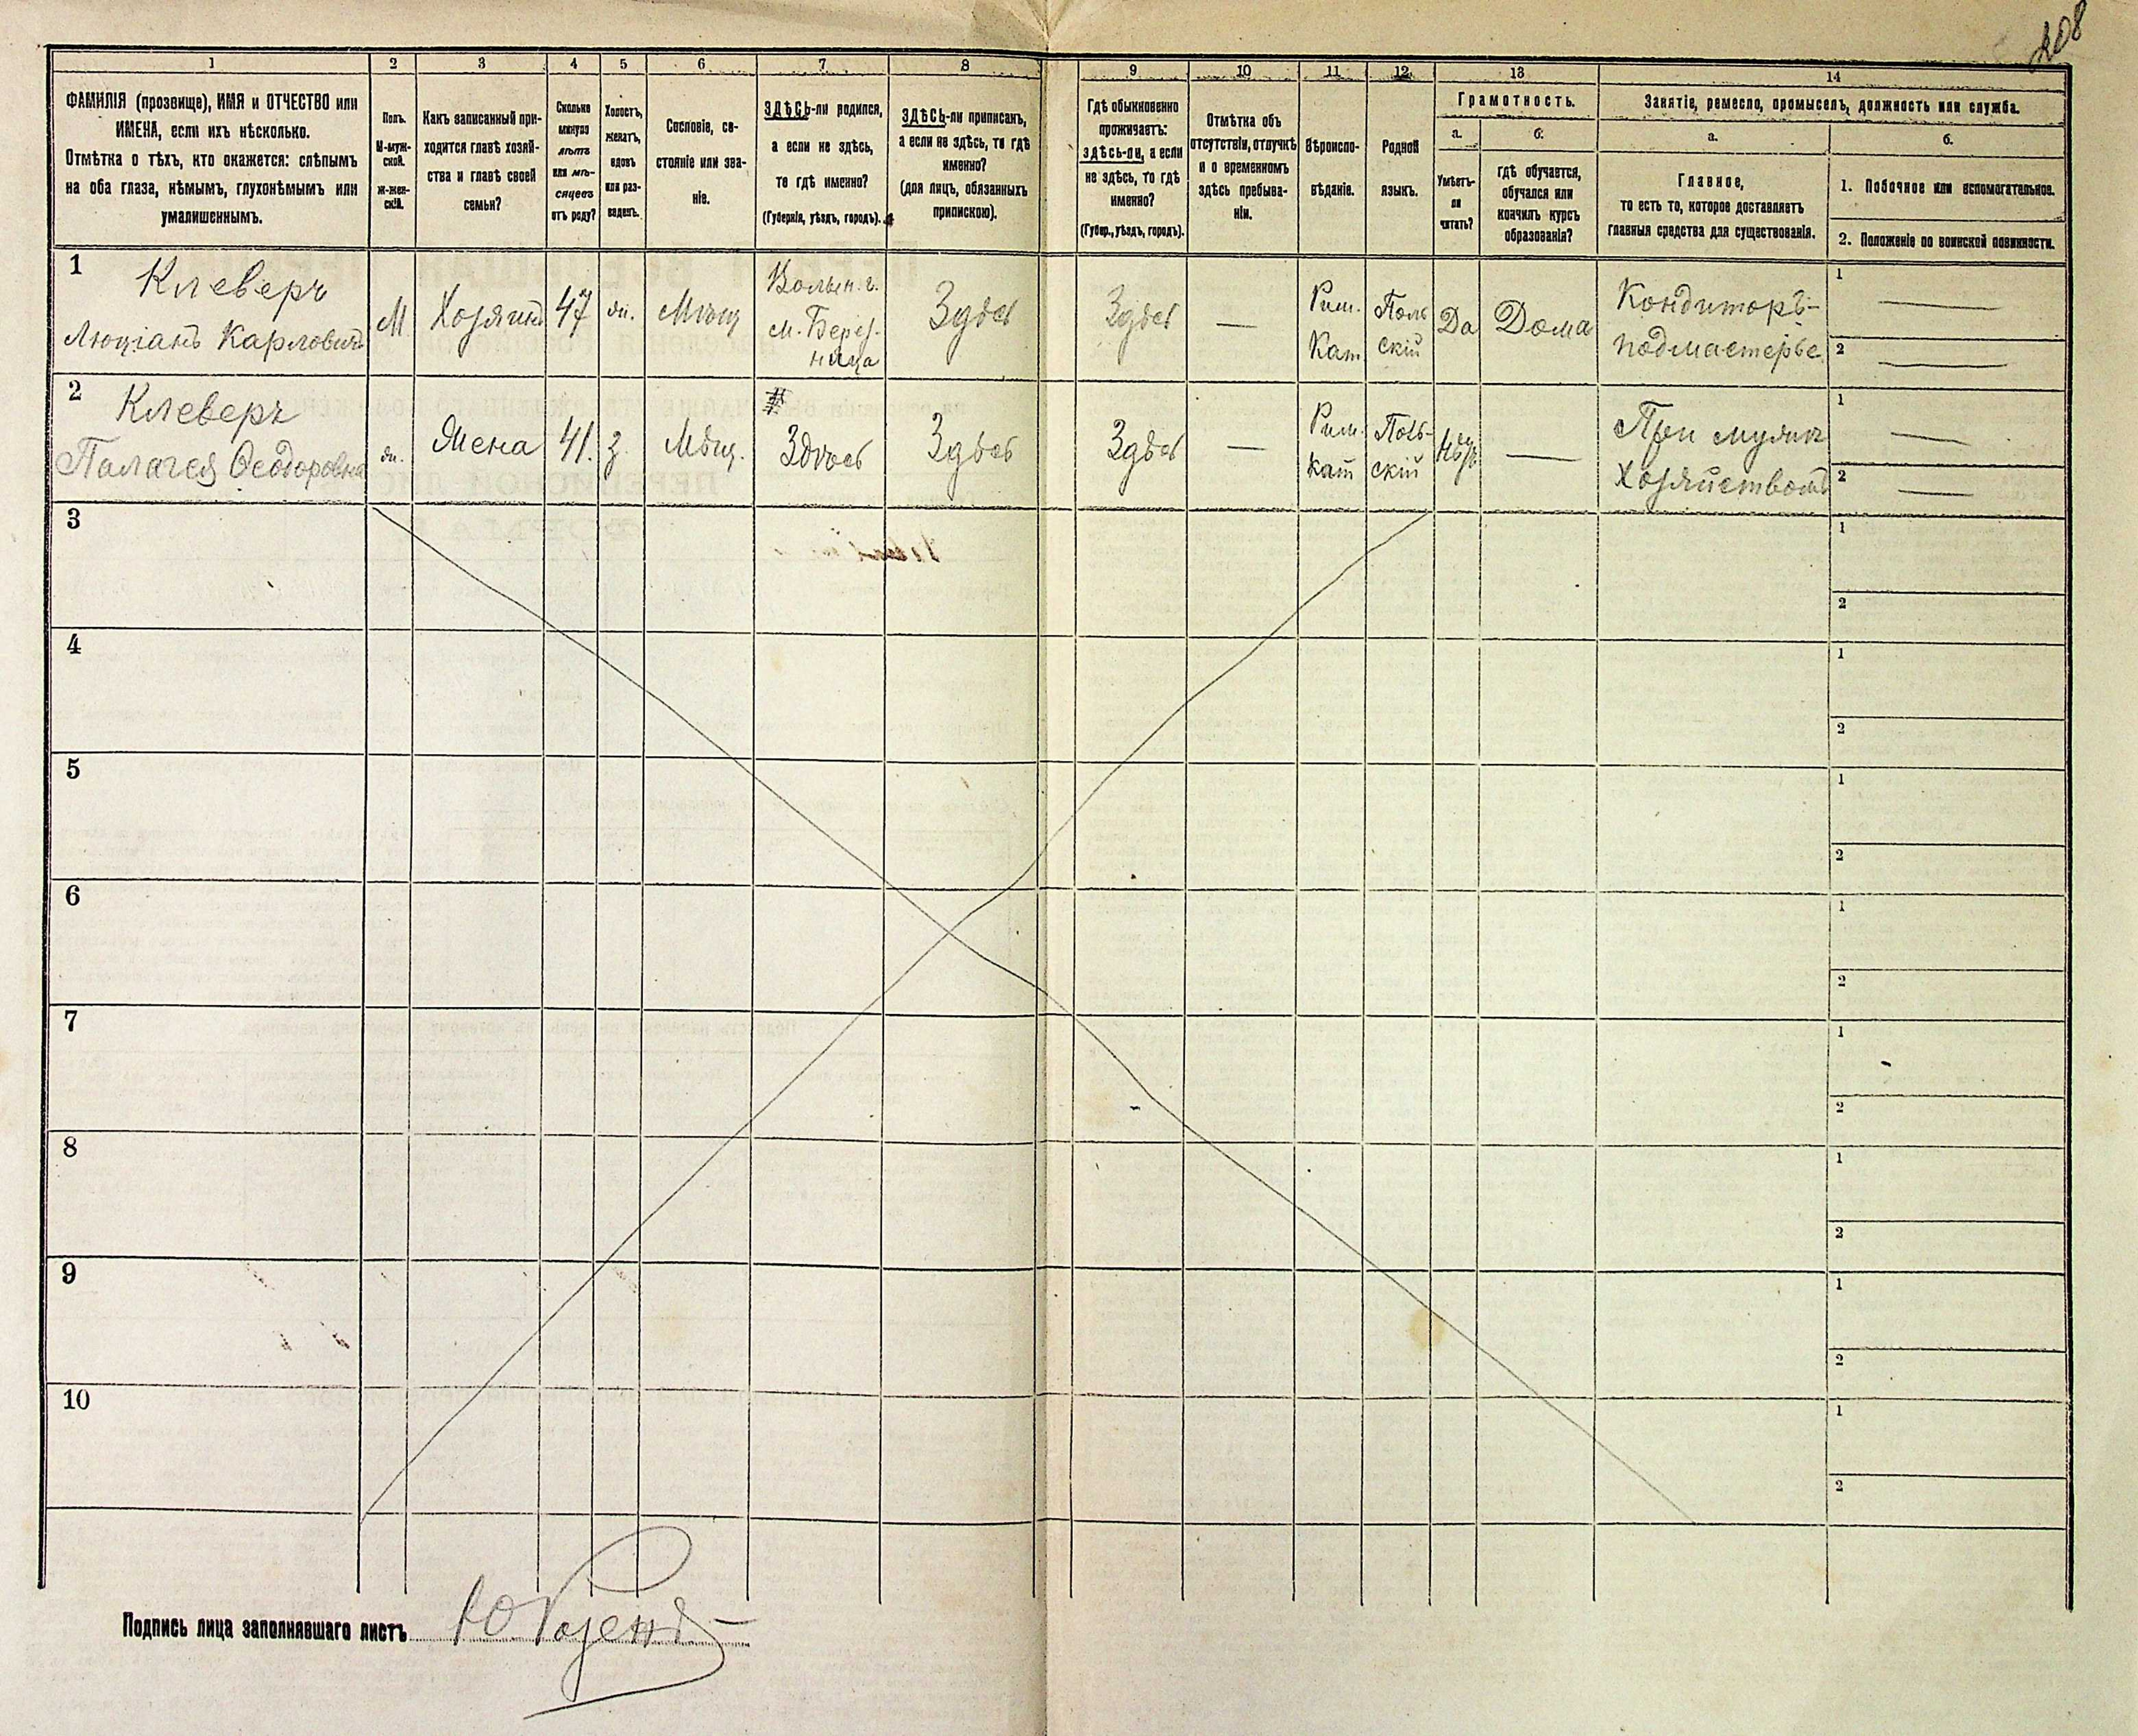 208
1 2 3 4 5 6 7 8 9 10 11 12 13 14
ФАМИЛІЯ (прозвище), ИМЯ и ОТЧЕСТВО или
ИМЕНА, если ихъ нѣсколько.
Отмѣтка о тѣхъ, кто окажется: слѣпымъ
на оба глаза, нѣмымъ, глухонѣмымъ или
умалишеннымъ.
Полъ.
М-муж-
ской.
Ж-жен-
скій.
Какъ записанный при-
ходится главѣ хозяй-
ства и главѣ своей
семьи?
Сколько
минуло
лѣтъ
или мѣ-
сяцевъ
отъ роду?
Холостъ,
женатъ,
вдовъ
или раз-
веденъ.
Сословіе, со-
стояніе или зва-
ніе.
ЗДѢСЬ-ли родился,
а если не здѣсь,
то гдѣ именно?
(Губернія, уѣздъ, городъ).
ЗДѢСЬ-ли приписанъ,
а если не здѣсь, то гдѣ
именно?
(для лицъ, обязанныхъ
припискою).
Гдѣ обыкновенно
проживаетъ:
здѣсь-ли, а если
не здѣсь, то гдѣ
именно?
(Губер., уѣздъ, городъ).
Отмѣтка объ
отсутствіи, отлучкѣ
и о временномъ
здѣсь пребыва-
ніи.
Вѣроиспо-
вѣданіе.
Родной
языкъ.
Грамотность.
а.
б.
Умѣетъ-
ли
читать?
гдѣ обучается,
обучался или
кончилъ курсъ
образованія?
Занятіе, ремесло, промыселъ, должность или служба.
а.
б.
Главное,
то есть то, которое доставляетъ
главныя средства для существованія.
1. Побочное или вспомогательное.
2. Положеніе по воинской повинности.
1
Клеверъ
Люціанъ Карловичъ
М
Хозяинъ
47
ж.
Мѣщ
Волын. г.
м. Берез-
ница
Здѣсь
Здѣсь
—
Рим.
Кат
Поль
скій
Да
Дома
Кондиторъ-
подмастерье
1 —
2 —
2
Клеверъ
Палагея Ѳеодоровна
ж.
Жена
41.
з.
Мѣщ.
Здѣсь
Здѣсь
Здѣсь
—
Рим.
Кат
Поль-
скій
Нѣтъ
—
При мужѣ
хозяйствомъ
1 —
2 —
3
1
2
4
1
2
5
1
2
6
1
2
7
1
2
8
1
2
9
1
2
10
1
2
Подпись лица заполнявшаго листъ